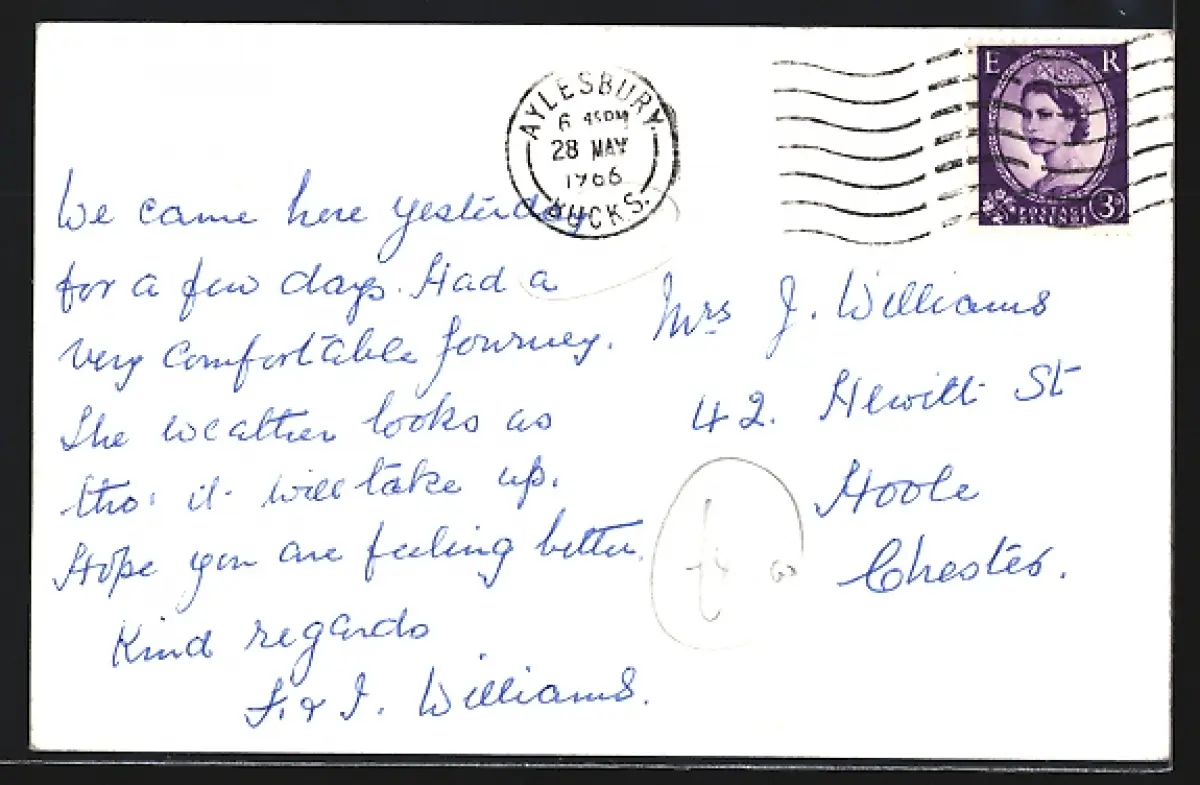 AYLESBURY.
6 45PM
28 MAY
1966
BUCKS.
E R
POSTAGE
REVENUE
3D
We came here yesterday
for a few days. Had a
very comfortable journey.
The weather looks as
tho: it will take up.
Hope you are feeling better.
Kind regards
F. & J. Williams.
Mrs J. Williams
42. Hewitt St
Hoole
Chester.